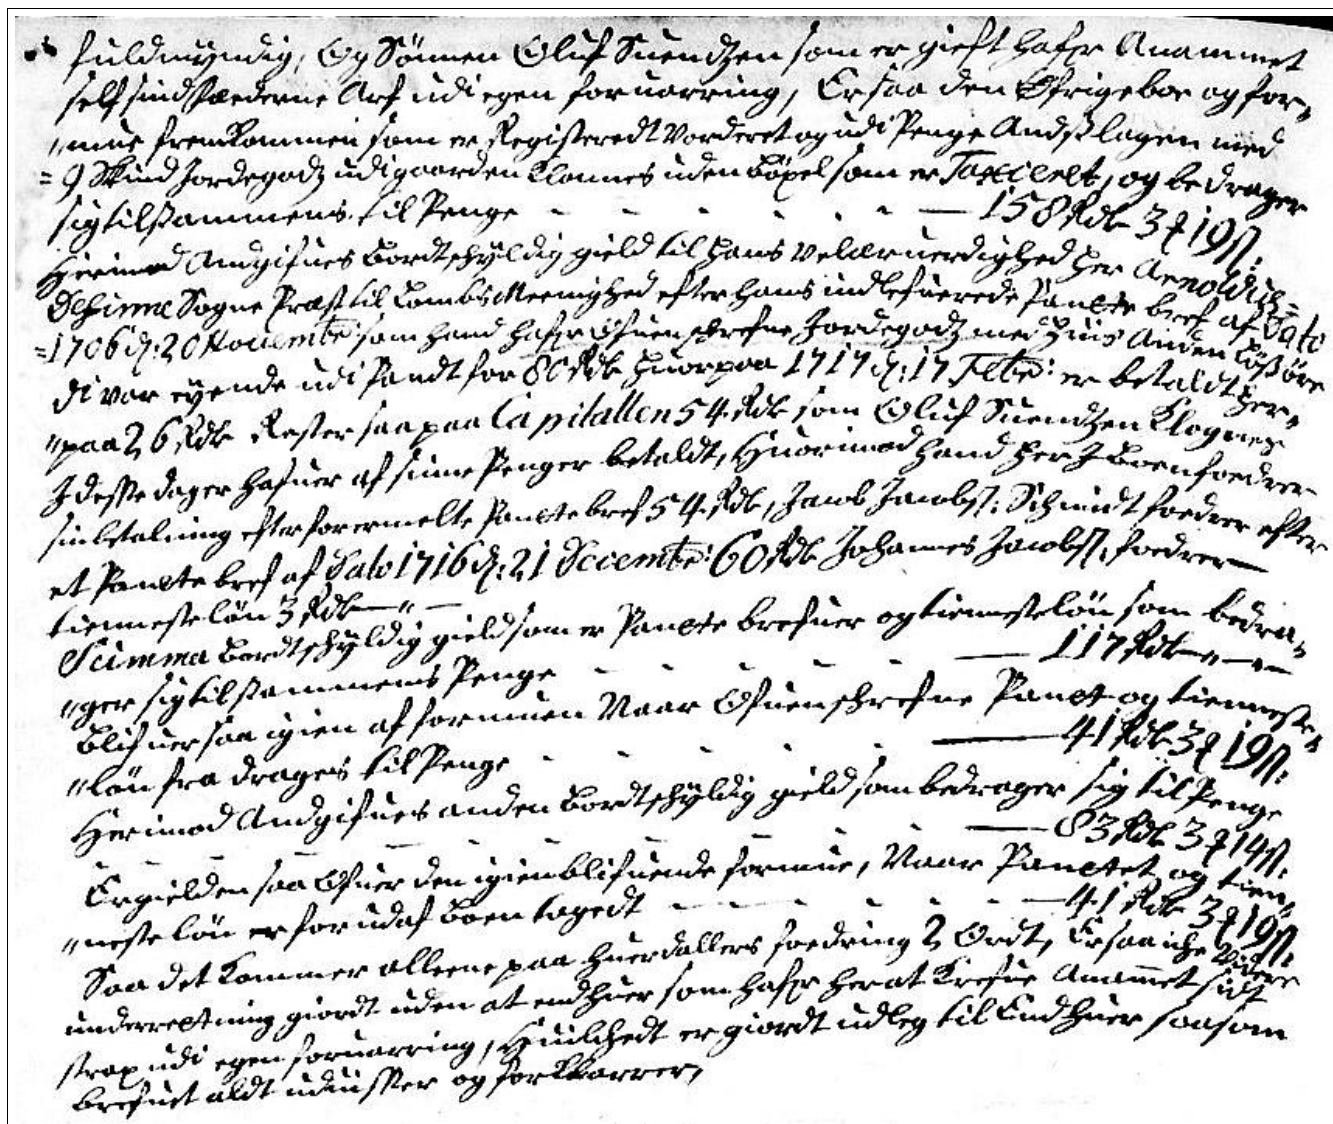 fuldmÿndig, Og Sönnen Oluf Suendtzen som er gieft hafr Anammet
self sind fæderne Arf udi egen foruarring, Er saa den Ofrige boe og for„
„mue fremkommen som er Registeredt Vorderet og udi Penge Andslagen med
= 9 Skind Jordegodz udi gaarden Klones uden böxel som er Taxceret, og bedrager
sig tilsammens til Penge - - - - - 158 Rdr 3 ₰ 19 ſſ:
Herimod Andgifues bordtschÿldig gield til Hans Velærverdighed Her Arnoldus
Dehinne Sogne Præst til Lombs Meenighed efter hans indlefuerede Pante bref af Dato
=1706 d: 20 Nouembr: som hand hafr Ofuenschrefne Jordegodz med Huis Anden Lössöre
di var eÿende udi Pandt for 80 Rdr Huorpaa 1717 d: 17 Febr: er betaldt Her„
„paa 26 Rdr Rester saa paa Capitallen 54 Rdr som Oluf Suendtzen Klognes
I desse dager hafuer af sinne Penger betaldt, Huorimod hand Her I Boen foedrer
sin betalning efter forermelte Pantebref 54 Rdr, Jacob Jacobſſ: Schmidt foedrer efter
et Pante bref af Dato 1716 d: 21 Decembr: 60 Rdr Johannes Jacobſſ: foedrer
tienneste lön 3 Rdr — „ —
Summa bordtschÿldig gield som er Pante brefuer og tienneste lön som bedra„
„ger sig tilsammens Penge - - - - 117 Rdr — „ — „ —
Blifuer saa igien af formuen Naar Ofuenschrefne Pant og tienneste„
„lön fra drages til Penge - - - 41 Rdr 3 ₰ 19 ſſ:
Herimod Andgifues anden bordtschÿldig gield som bedrager sig til Penge
- - - - - 83 Rdr 3 ₰ 14 ſſ:
Er gielden saa Ofuer den igienblifuende formue, Naar Pantet og tien„
„neste lön er forud af boen tagedt - - - - 41 Rdr 3 ₰ 19 ſſ:
Saa det kommer alleene paa huer dallers foedring 2 Ordt, Er saa iche Videre
underretning giordt uden at end huer som hafr her at krefue Anammet sidt
strax udi egen foruarring, Huilchedt er giordt udleg til End huer saasom
brefuet aldt uduisser og forklarrer,